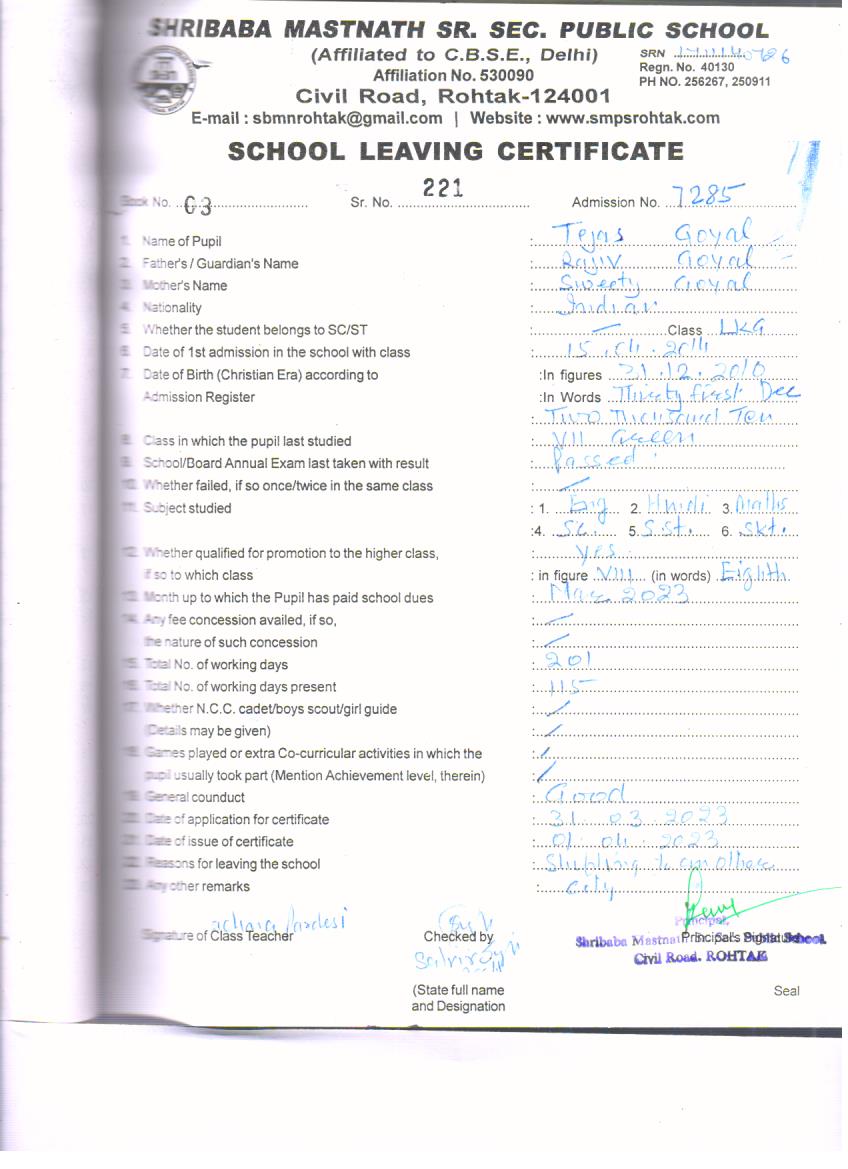 SHRIBABA MASTNATH SR. SEC. PUBLIC SCHOOL
(Affiliated to C.B.S.E., Delhi)
SRN
Affiliation No. 530090
Regn. No. 40130
PH NO. 256267, 250911
Civil Road, Rohtak-124001
E-mail : sbmnrohtak@gmail.com | Website : www.smpsrohtak.com
SCHOOL LEAVING CERTIFICATE
Book No. 03 Sr. No. 221 Admission No. 7285
1. Name of Pupil : Tejas Goyal
2. Father's / Guardian's Name : Rajiv Goyal
3. Mother's Name : Sweety Goyal
4. Nationality : Indian
5. Whether the student belongs to SC/ST : — Class LKG
6. Date of 1st admission in the school with class : 15.04.2014
7. Date of Birth (Christian Era) according to :In figures 31.12.2010
Admission Register :In Words Thirty first Dec
: Two Thousand Ten
8. Class in which the pupil last studied : VII Green
9. School/Board Annual Exam last taken with result : Passed
10. Whether failed, if so once/twice in the same class : —
11. Subject studied : 1. Eng 2. Hindi 3. Maths
:4. Sc. 5. S.St. 6. Skt.
12. Whether qualified for promotion to the higher class, : Yes
if so to which class : in figure VIII (in words) Eighth
13. Month up to which the Pupil has paid school dues : Mar 2023
14. Any fee concession availed, if so, : —
the nature of such concession : —
15. Total No. of working days : 201
16. Total No. of working days present : 115
17. Whether N.C.C. cadet/boys scout/girl guide : /
(Details may be given) : /
18. Games played or extra Co-curricular activities in which the : /
pupil usually took part (Mention Achievement level, therein) : /
19. General counduct : Good
20. Date of application for certificate : 31.03.2023
21. Date of issue of certificate : 01.04.2023
22. Reasons for leaving the school : Shifting to another
23. Any other remarks : City
Signature of Class Teacher
Checked by
Principal,
Principal's Signature
Shribaba Mastnath Sr. Sec. Public School
Civil Road. ROHTAK
(State full name
and Designation
Seal